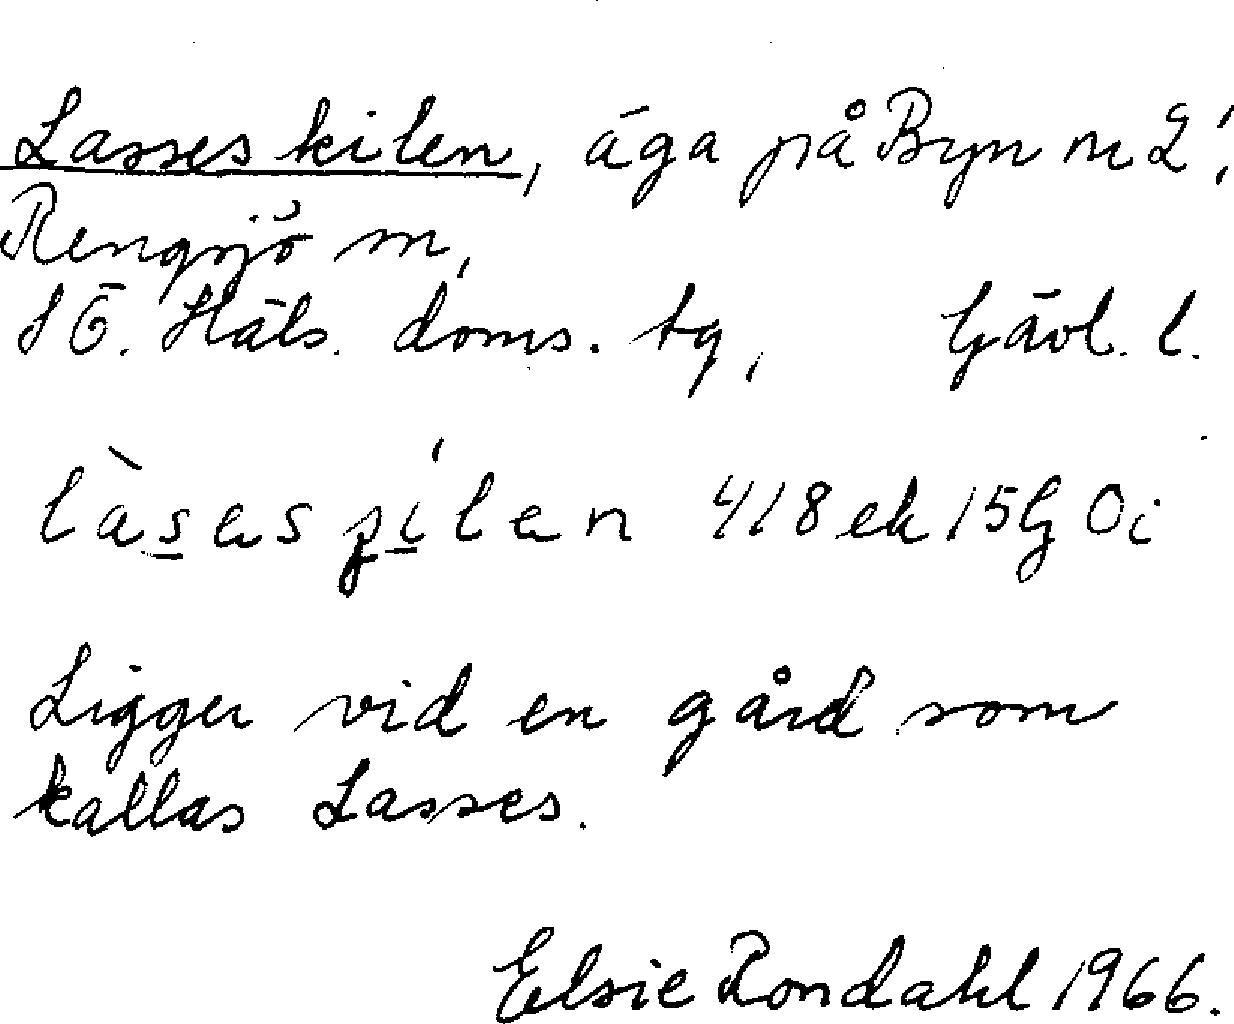 Lasseskilen, äga på Byn nr 2!,
Rengsjö sn,
SÖ. Häls. doms. tg, Gävl. l.
làses pílen 418 ek 15G Oi
Ligger vid en gård som
kallas Lasses.
Elsie Rondahl 1966.